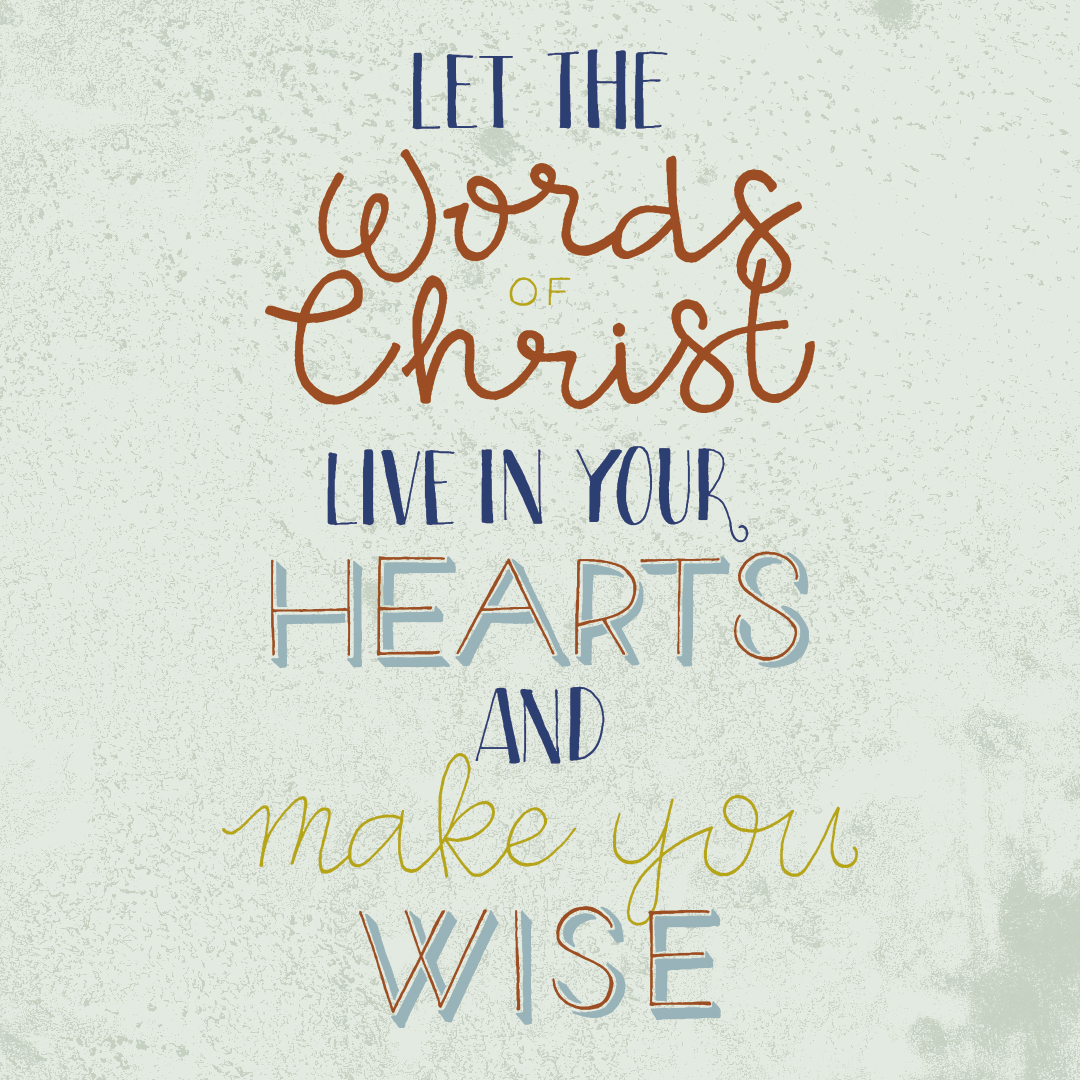 LET THE
Words
OF
Christ
LIVE IN YOUR
HEARTS
AND
make you
WISE